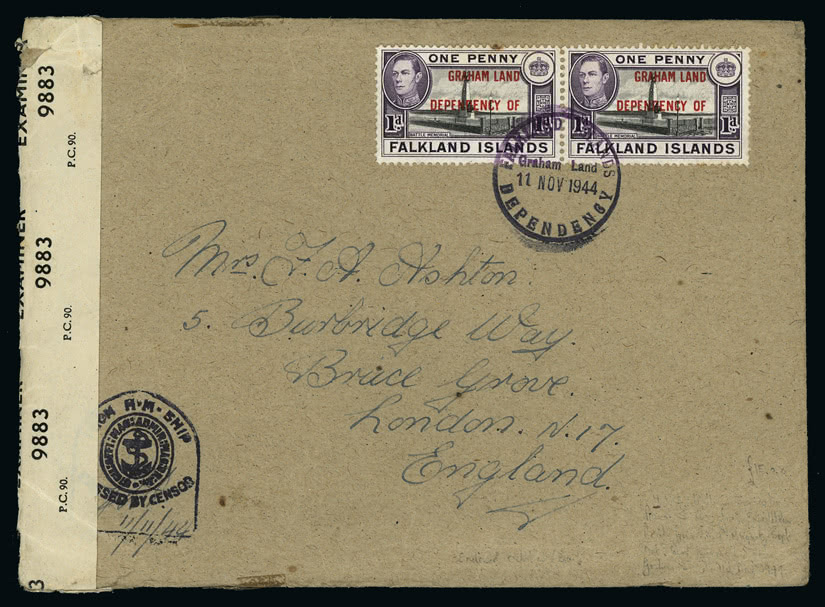 EXAMINER 9883
P.C. 90.
EXAMINER 9883
P.C. 90.
EXAMINER 9883
P.C. 90.
3
ONE PENNY
GRAHAM LAND
DEPENDENCY OF
1d
BATTLE MEMORIAL
1d
FALKLAND ISLANDS
ONE PENNY
GRAHAM LAND
DEPENDENCY OF
1d
BATTLE MEMORIAL
1d
FALKLAND ISLANDS
FALKLAND ISLANDS
Graham Land
11 NOV 1944
DEPENDENCY
Mrs. F. A. Ashton.
5. Burbridge Way.
Bruce Grove.
London. N.17.
England.
H·M·SHIP
SSED BY CENSOR
11/11/44